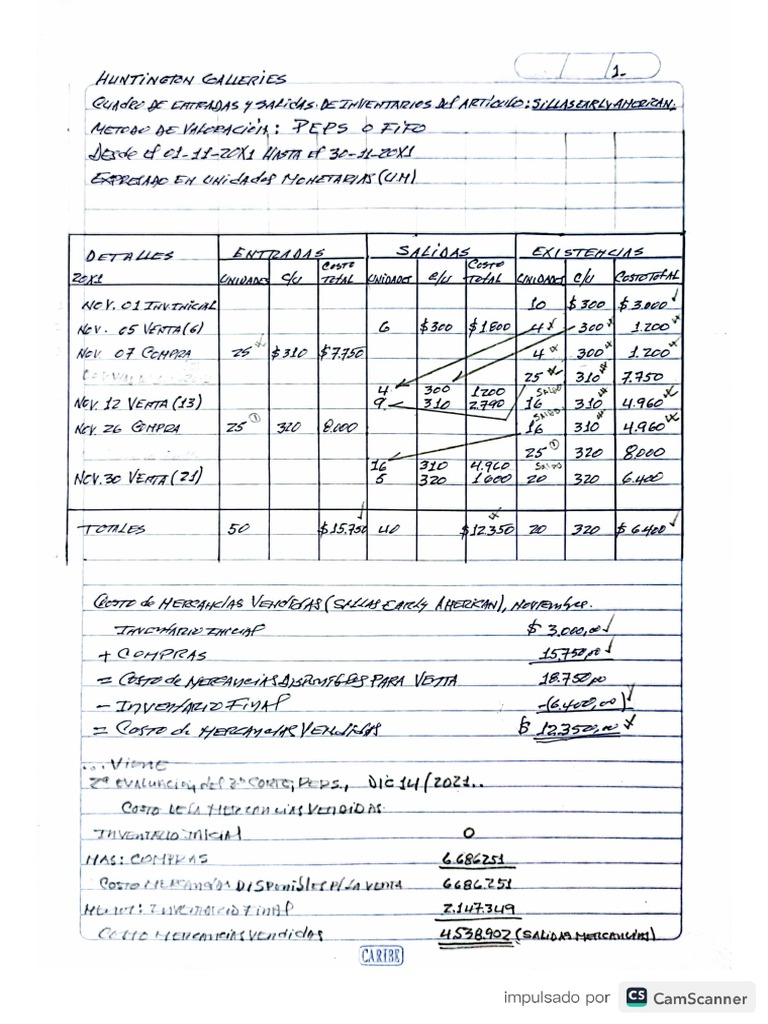 1-
HUNTINGTON GALLERIES
CUADRO DE ENTRADAS Y SALIDAS DE INVENTARIOS DEL ARTÍCULO: SILLAS EARLY AMERICAN.
METODO DE VALORACIÓN: PEPS O FIFO
DESDE el 01-11-20X1 HASTA el 30-11-20X1
EXPRESADO EN UNIDADES MONETARIAS (U.M)
DETALLES ENTRADAS SALIDAS EXISTENCIAS
20X1 UNIDADES C/U COSTO TOTAL UNIDADES C/U COSTO TOTAL UNIDADES C/U COSTO TOTAL
NOV. 01 INV. INICIAL 10 $ 300 $ 3.000
NOV. 05 VENTA (6) 6 $ 300 $ 1800 4 300 1.200
NOV 07 COMPRA 25 $ 310 $ 7.750 4 300 1.200
25 310 7.750
4 300 1200 SALDO
NOV. 12 VENTA (13) 9 310 2.790 16 310 4.960
SALDO
NOV. 26 COMPRA 25 ① 320 8.000 16 310 4.960
25 ① 320 8.000
16 310 4.960 SALDO
NOV. 30 VENTA (21) 5 320 1600 20 320 6.400
TOTALES 50 $ 15.750 40 $ 12.350 20 320 $ 6.400
COSTO de MERCANCIAS VENDIDAS (SILLAS EARLY AMERICAN), NOVIEMBRE.
INVENTARIO INICIAL $ 3.000,00
+ COMPRAS 15.750,00
= COSTO de MERCANCIAS DISPONIBLES PARA VENTA 18.750,00
- INVENTARIO FINAL -(6.400,00)
= COSTO de MERCANCIAS VENDIDAS $ 12.350,00
...VIENE
2ª EVALUACIÓN del 3er CORTE, PEPS., DIC 14/2021..
COSTO DE LA MERCANCIAS VENDIDAS
INVENTARIO INICIAL 0
MAS: COMPRAS 6.686.251
COSTO MERCANCIAS DISPONIBLES P/LA VENTA 6686.251
MENOS: INVENTARIO FINAL 2.147.349
COSTO MERCANCIAS VENDIDAS 4.538.902 (SALIDAS MERCANCIAS)
CARIBE
impulsado por CS CamScanner